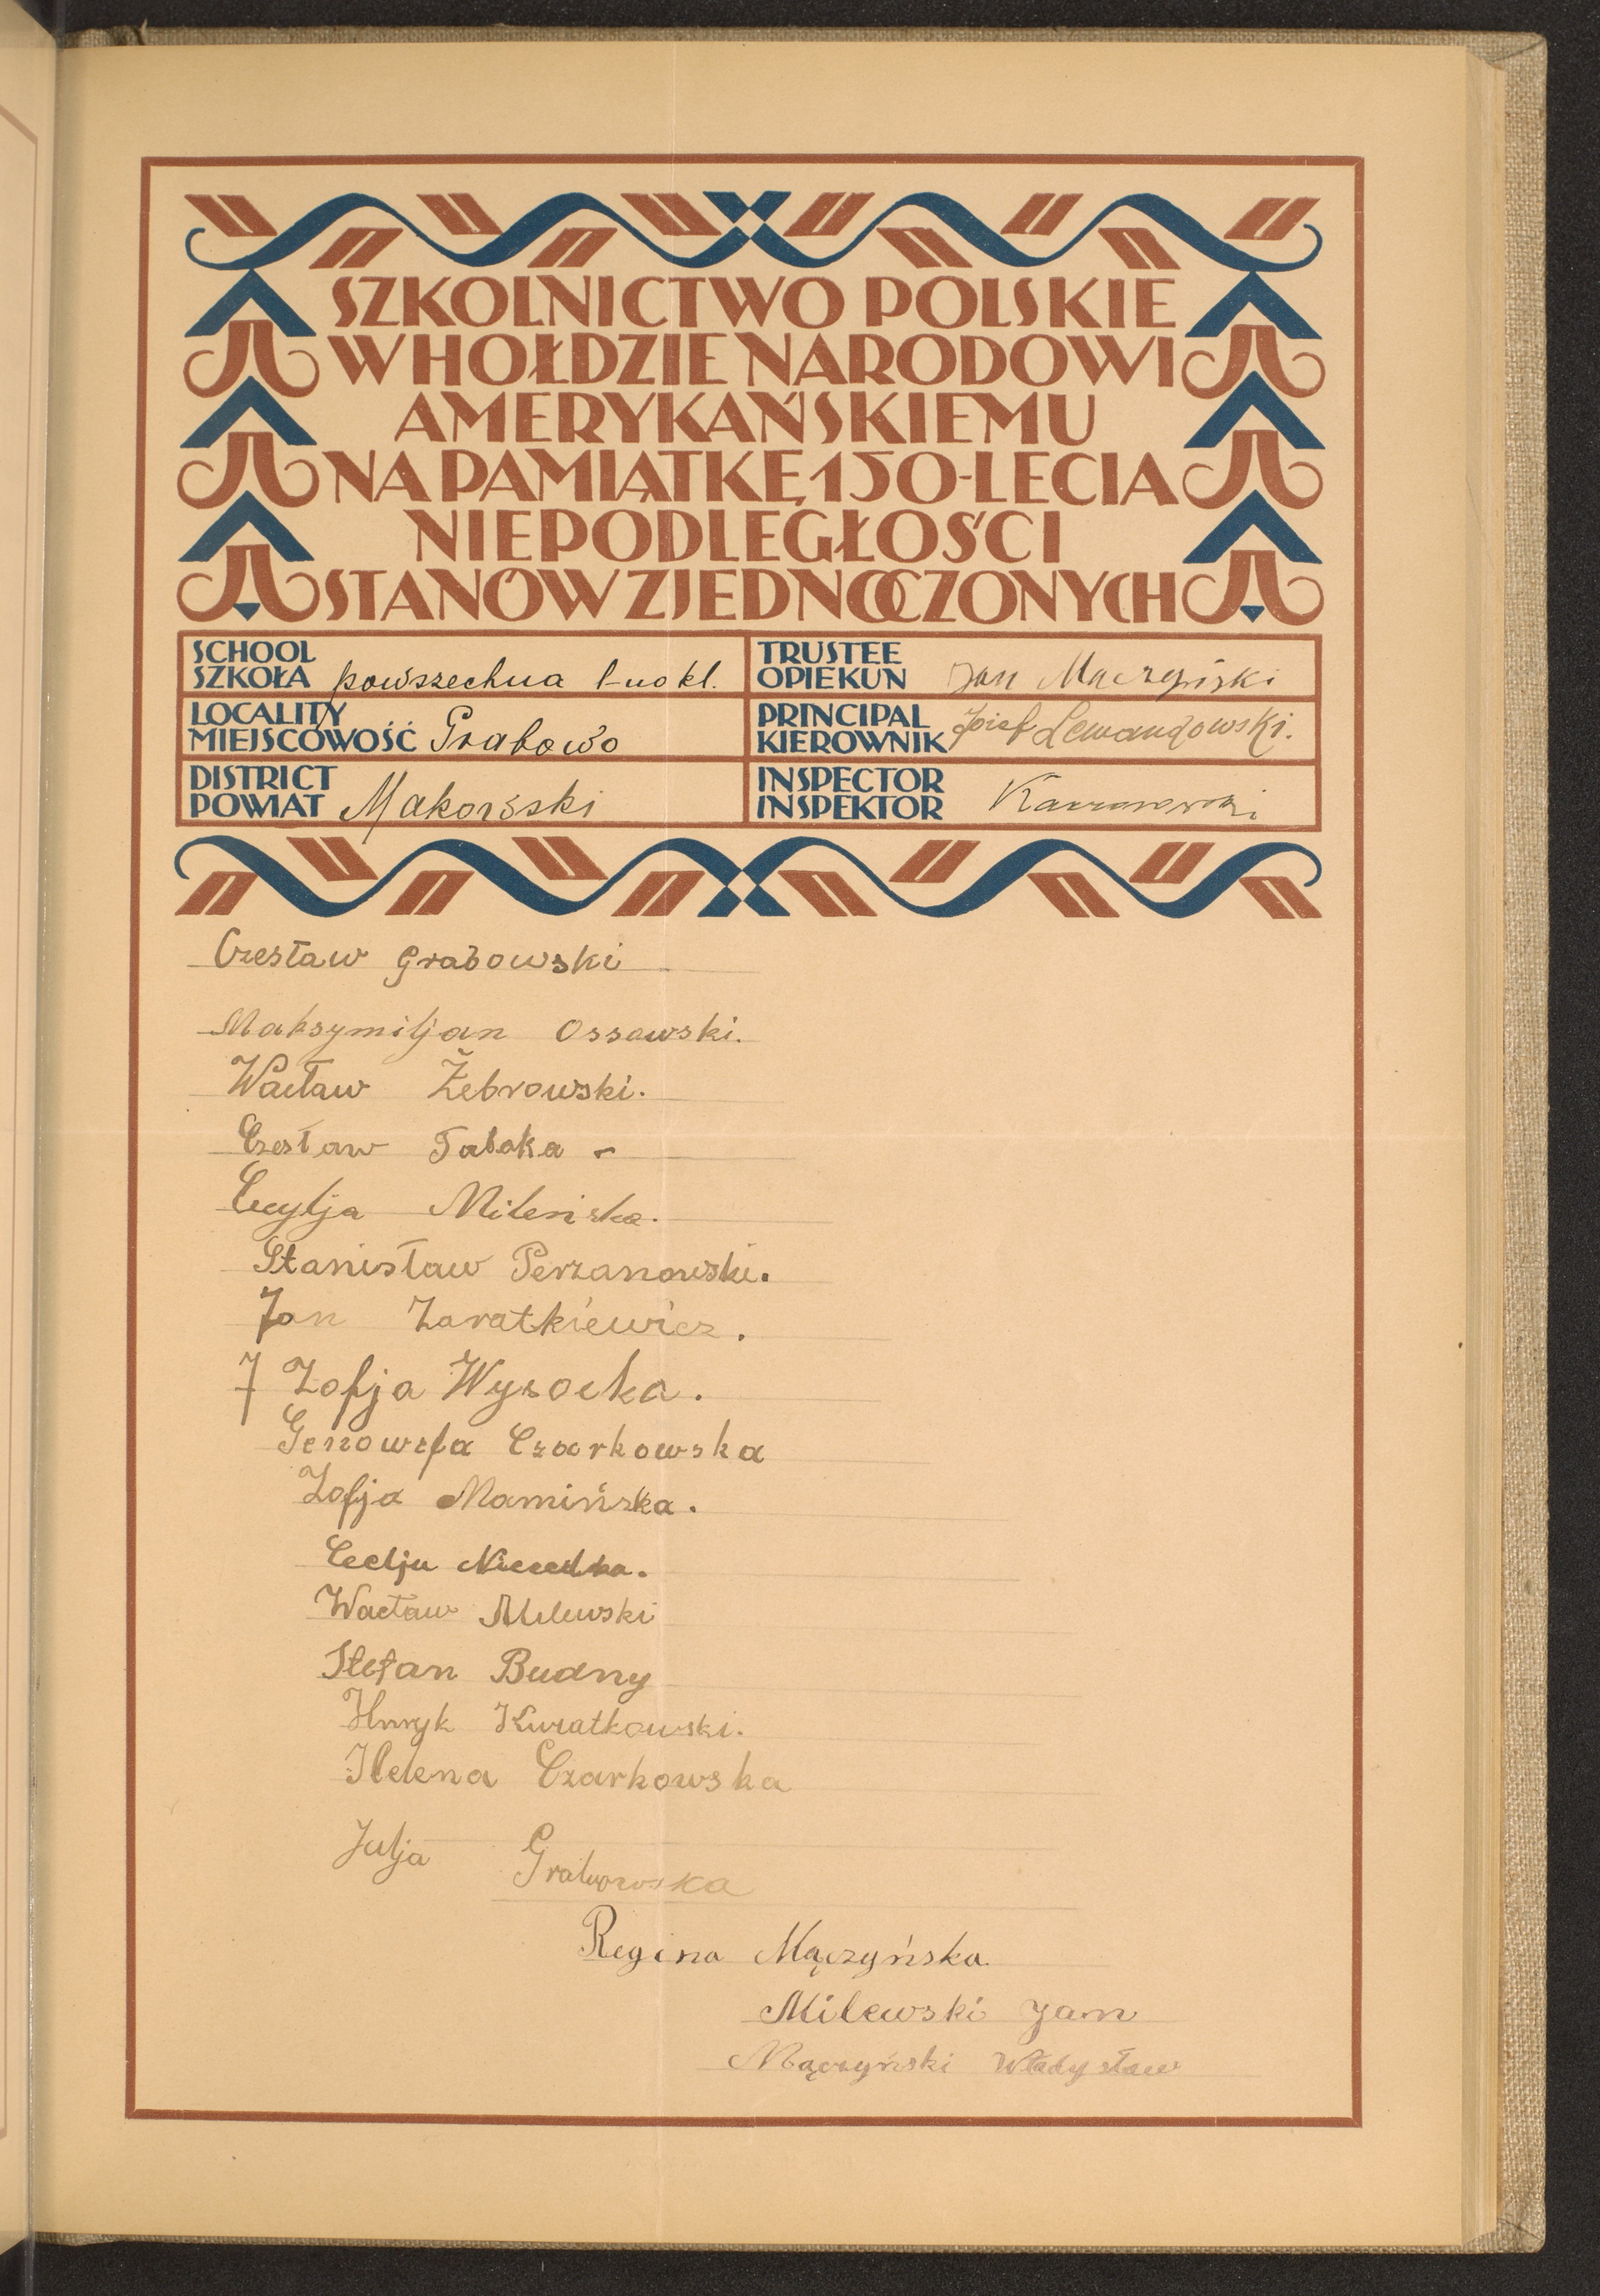 SZKOLNICTWO POLSKIE
W HOŁDZIE NARODOWI
AMERYKAŃSKIEMU
NA PAMIĄTKĘ 150-LECIA
NIEPODLEGŁOŚCI
STANÓW ZJEDNOCZONYCH
SCHOOL
SZKOŁA powszechna 1-no kl.
LOCALITY
MIEJSCOWOŚĆ Grabowo
DISTRICT
POWIAT Makowski
TRUSTEE
OPIEKUN Jan Mączyński
PRINCIPAL
KIEROWNIK Józef Lewandowski.
INSPECTOR
INSPEKTOR
Czesław Grabowski
Maksymiljan Ossowski.
Wacław Żebrowski.
Czesław Tabaka -
Cecylja Mileńska.
Stanisław Perzanowski.
Jan Zaratkiewicz.
J Zofja Wysocka.
Genowefa Czarkowska
Zofja Mamińska.
Wacław Milewski
Stefan Budny
Henryk Kwiatkowski.
Helena Czarkowska
Julja Grabowska
Regina Mączyńska
Milewski Jan
Mączyński Władysław